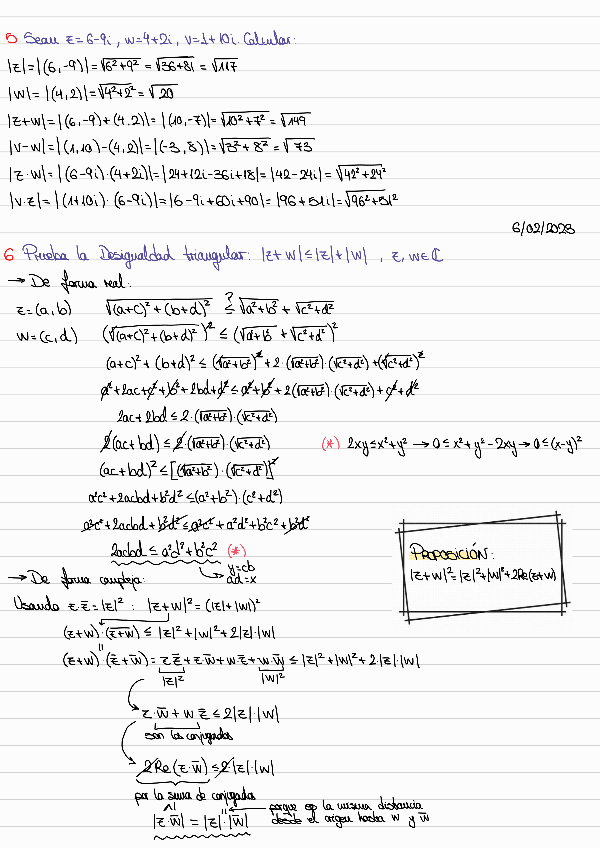 5 Sean z=6-9i, w=4+2i, v=1+10i. Calcular:
|z|=|(6,-9)|=√6²+9² = √36+81 = √117
|w|=|(4,2)|=√4²+2² = √20
|z+w|=|(6,-9)+(4,2)|=|(10,-7)|=√10²+7² = √149
|v-w|=|(1,10)-(4,2)|=|(-3,8)|=√3²+8² = √73
|z·w|=|(6-9i)·(4+2i)|=|24+12i-36i+18|=|42-24i|=√42²+24²
|v·z|=|(1+10i)·(6-9i)|=|6-9i+60i+90|=|96+51i|=√96²+51²
6/02/2023
6 Prueba la Desigualdad triangular: |z+w|≤|z|+|w| , z,w∈ℂ
→ De forma real:
z=(a,b) √(a+c)²+(b+d)² ≤? √a²+b² + √c²+d²
w=(c,d) (√(a+c)²+(b+d)²)² ≤ (√a²+b² + √c²+d²)²
(a+c)²+(b+d)² ≤ (√a²+b²)²+2·(√a²+b²)·(√c²+d²)+(√c²+d²)²
a²+2ac+c²+b²+2bd+d² ≤ a²+b²+2(√a²+b²)·(√c²+d²)+c²+d²
2ac+2bd ≤ 2·(√a²+b²)·(√c²+d²)
2(ac+bd) ≤ 2·(√a²+b²)·(√c²+d²) (*) 2xy≤x²+y² → 0≤x²+y²-2xy → 0≤(x-y)²
(ac+bd)² ≤ [(√a²+b²)·(√c²+d²)]²
a²c²+2acbd+b²d² ≤ (a²+b²)·(c²+d²)
a²c²+2acbd+b²d² ≤ a²c²+a²d²+b²c²+b²d²
2acbd ≤ a²d²+b²c² (*)
y=cb
ad=x
PROPOSICIÓN:
|z+w|²=|z|²+|w|²+2Re(z+w)
→ De forma compleja:
Usando z·z̄=|z|² : |z+w|²=(|z|+|w|)²
(z+w)·(z+w)‾ ≤ |z|²+|w|²+2|z|·|w|
(z+w)·(z̄+w̄) = z·z̄+z·w̄+w·z̄+w·w̄ ≤ |z|²+|w|²+2·|z|·|w|
|z|² |w|²
z·w̄+w·z̄ ≤ 2|z|·|w|
son los conjugados
2Re(z·w̄) ≤ 2·|z|·|w|
por la suma de conjugados
|z·w̄| = |z|·|w̄| ← porque es la misma distancia
desde el origen hasta w y w̄